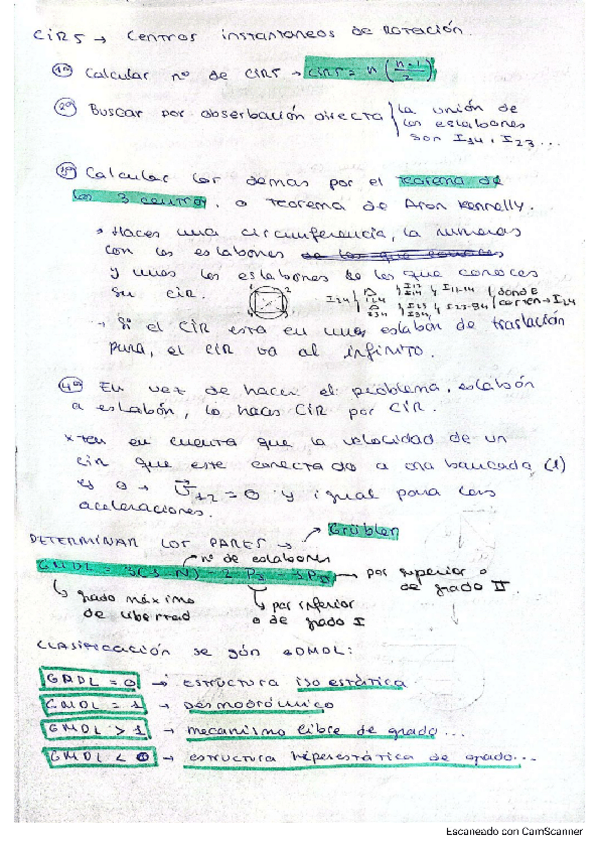 CIRS → Centros instantaneos de ROTACIÓN.
1º Calcular nº de CIRS → CIRS = n (n-1/2)
2º Buscar por obserbación directa } la unión de
los eslabones
son I34, I23...
3º Calcular los demas por el teorema de
los 3 centros, o teorema de Aron Kennelly.
→ Haces una circumferencia, la numeras
con los eslabones
y unes los eslabones de los que conoces
su CIR.
1 2 I24
donde
corten → I24
→ Si el CIR esta en unos eslabón de traslación
pura, el CIR va al infinito.
4º En vez de hacer el problema, eslabón
a eslabón, lo haces CIR por CIR.
* ten en cuenta que la velocidad de un
CIR que este conectado a una bancada (1)
es 0 → = 0 y igual para las
aceleraciones.
Grübler
DETERMINAR LOS PARES →
nº de eslabones
GMDL = → par superior o
de grado II.
↳ grado máximo
de libertad
↳ par inferior
o de grado I
CLASIFICACIÓN según GDMDL:
GMDL = 0 → estructura isoestática
GMDL = 1 → Desmodrómico
GMDL > 1 → mecanismo libre de grado...
GMDL < 0 → estructura hiperestática de grado...
Escaneado con CamScanner